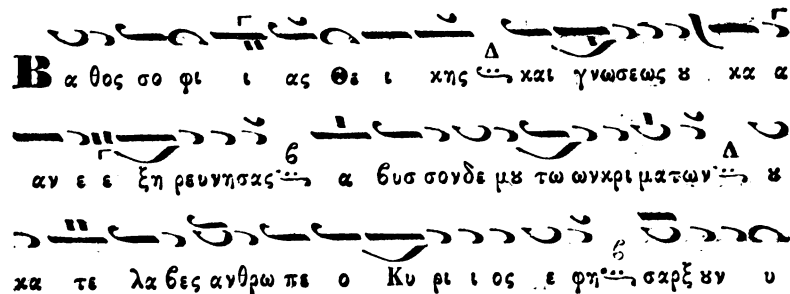 Β α θος σο φι ι ας Θε ι κης Δ και γνωσεως ȣ κα α
αν ε ε ξη ρευνησας β α ϐυσ σονδε μȣ τω ωνκρι ματων Δ ȣ
κα τε λα ϐες ανθρω πε ο Κυ ρι ι ος ε φη β σαρξ ȣν υ